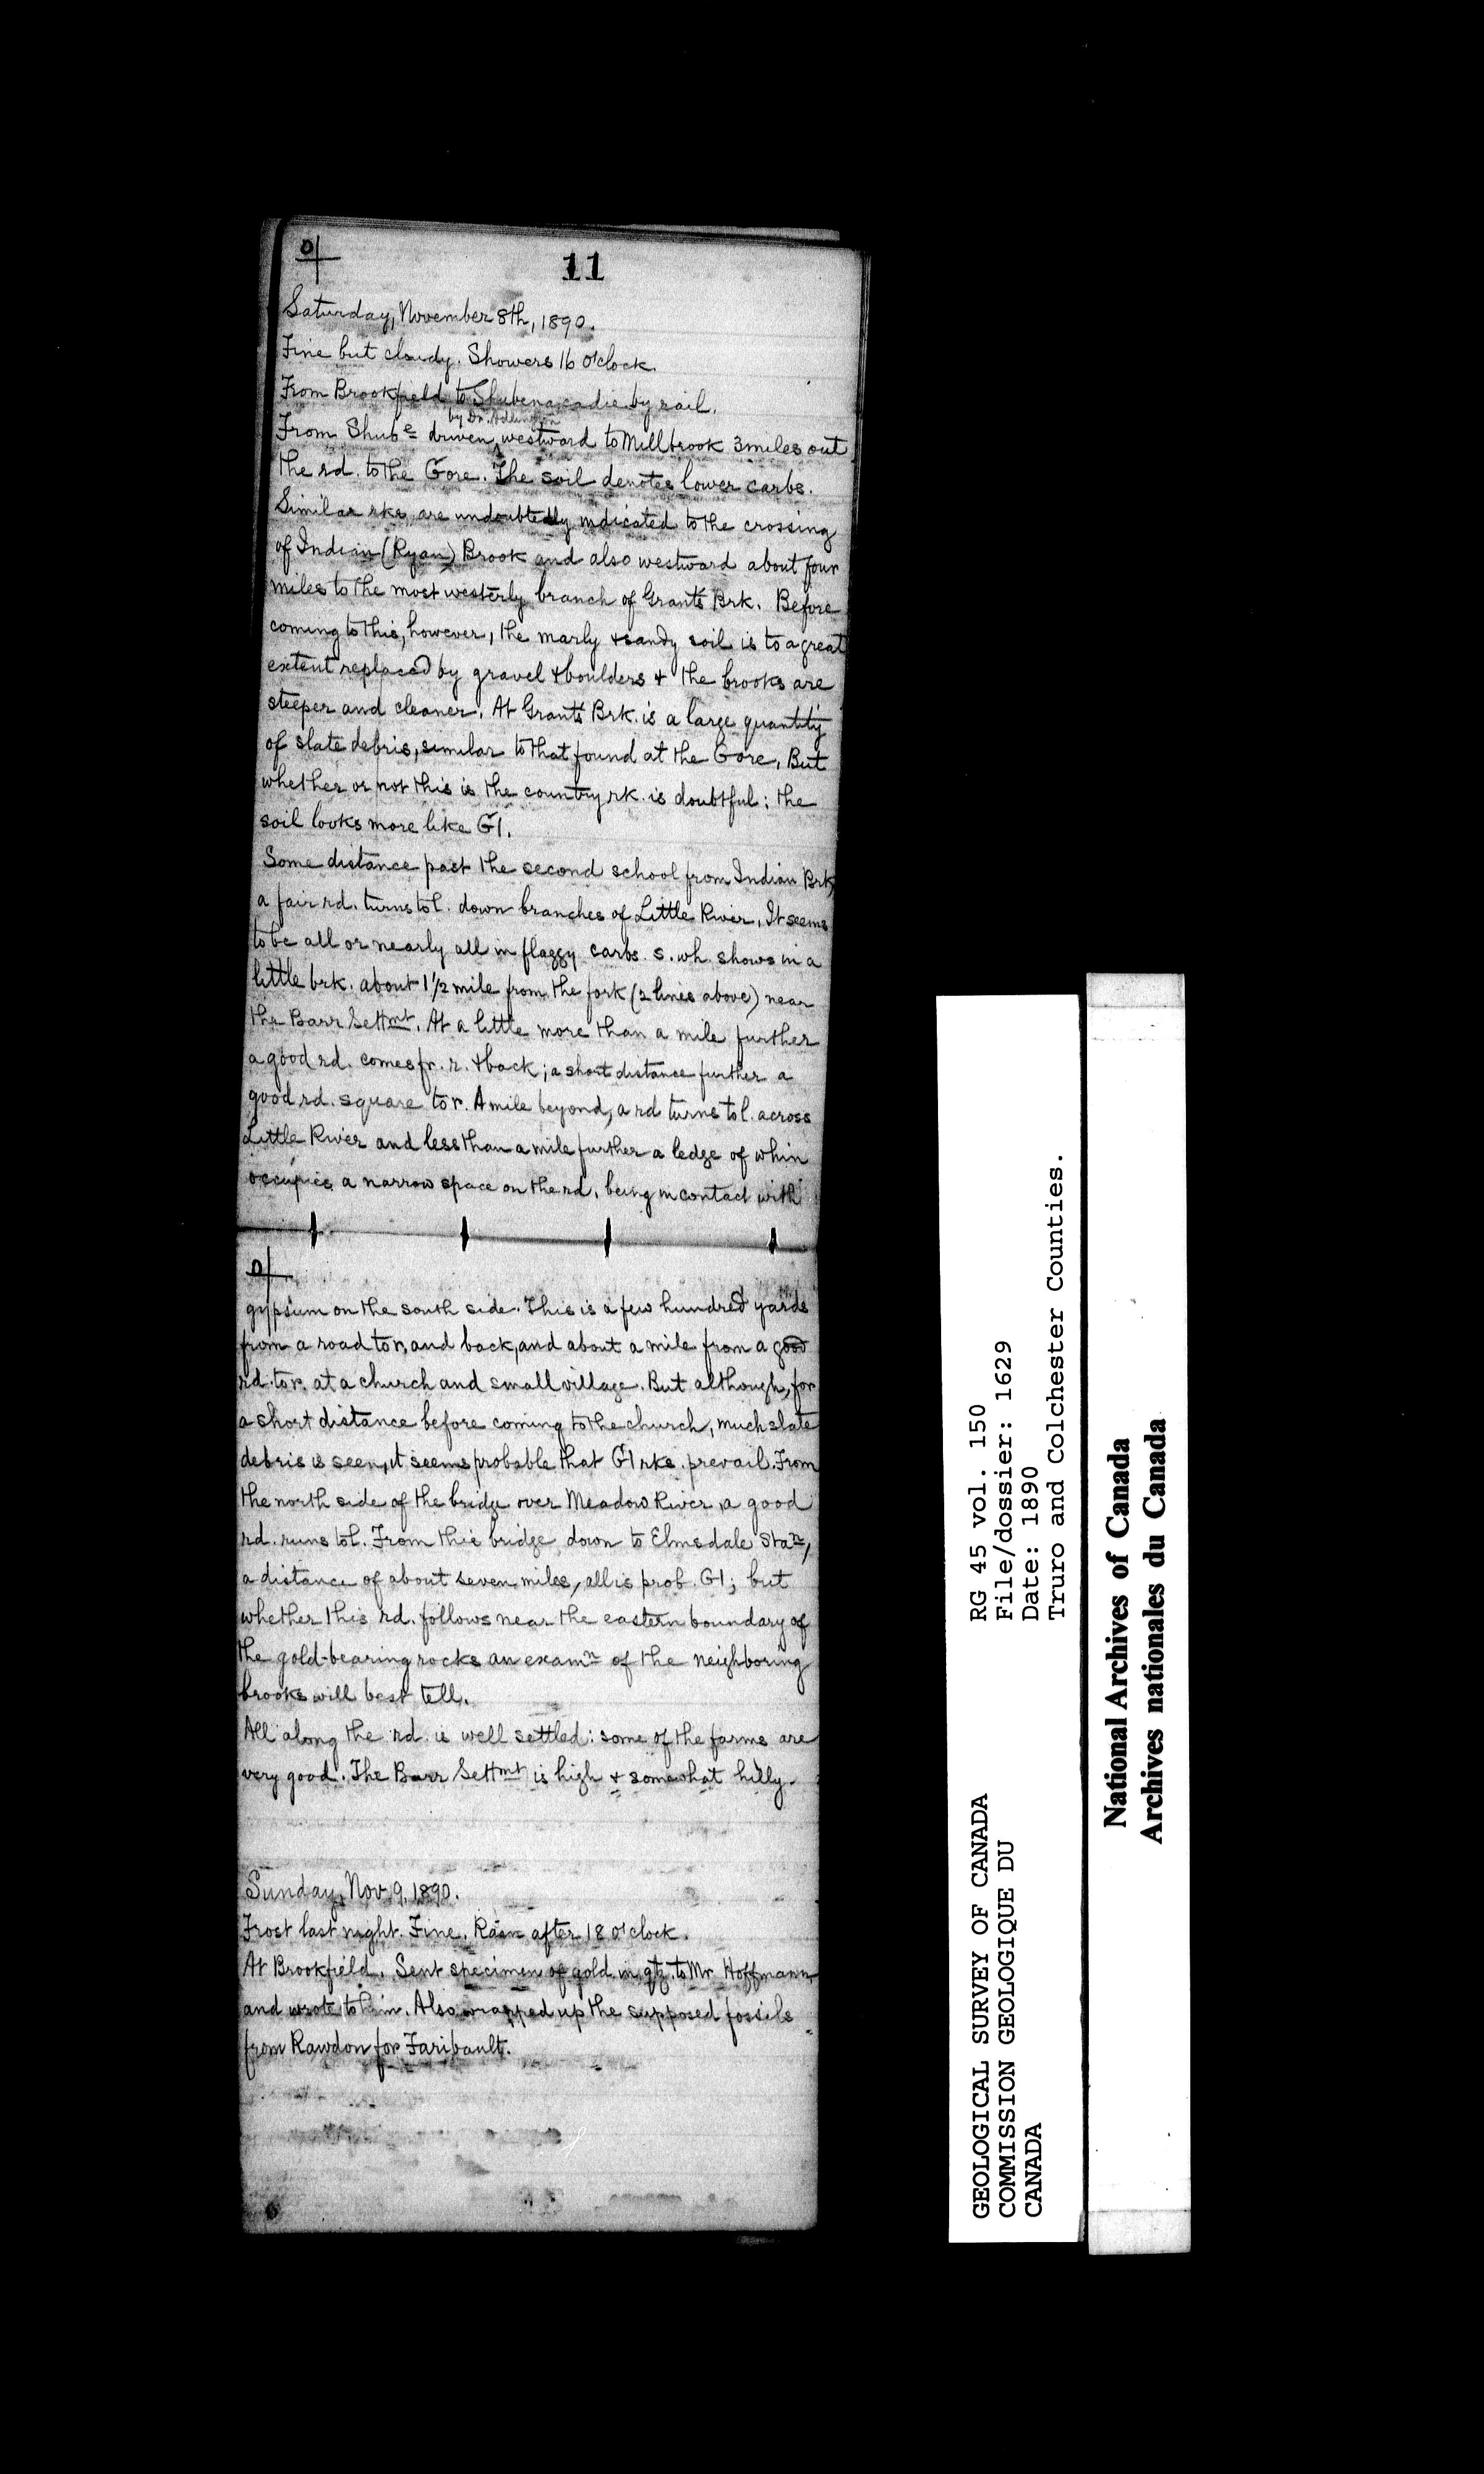 11
Saturday, November 8th, 1890.
Fine but cloudy. Showers 16 o'clock.
From Brookfield to Shubenacadie by rail.
by Dr.
From Shube driven westward to Millbrook 3 miles out
the rd. to the Gore. The soil denotes lower carbs.
Similar rks. are undoubtedly indicated to the crossing
of Indian (Ryan) Brook and also westward about four
miles to the most westerly branch of Grant's Brk. Before
coming to this, however, the marly & sandy soil is to a great
extent replaced by gravel & boulders & the brooks are
steeper and cleaner. At Grant's Brk. is a large quantity
of slate debris, similar to that found at the Gore. But
whether or not this is the country rk. is doubtful: the
soil looks more like G1.
Some distance past the second school from Indian Brk,
a fair rd. turns to l. down branches of Little River. It seems
to be all or nearly all in flaggy carbs. s. wh. shows in a
little brk. about 1 1/2 mile from the fork (2 lines above) near
the Barr Settmt. At a little more than a mile further
a good rd. comes fr. r. & back; a short distance further a
good rd. square to r. A mile beyond, a rd turns to l. across
Little River and less than a mile further a ledge of whin
occupies a narrow space on the rd. being in contact with
gypsum on the south side. This is a few hundred yards
from a road to r. and back, and about a mile from a good
rd. to r. at a church and small village. But although, for
a short distance before coming to the church, much slate
debris is seen, it seems probable that G1 rks. prevail. From
the north side of the bridge over Meadow River, a good
rd. runs to l. From this bridge down to Elmsdale Stan,
a distance of about seven miles, all is prob. G1; but
whether this rd. follows near the eastern boundary of
the gold-bearing rocks an examn of the neighboring
brooks will best tell.
All along the rd. is well settled: some of the farms are
very good. The Barr Settmt is high & somewhat hilly.
Sunday, Nov. 9, 1890.
Frost last night. Fine. Rain after 18 o'clock.
At Brookfield. Sent specimen of gold in qtz. to Mr. Hoffmann
and wrote to him. Also wrapped up the supposed fossils
from Rawdon for Faribault.
GEOLOGICAL SURVEY OF CANADA
COMMISSION GEOLOGIQUE DU
CANADA
RG 45 vol. 150
File/dossier: 1629
Date: 1890
Truro and Colchester Counties.
National Archives of Canada
Archives nationales du Canada